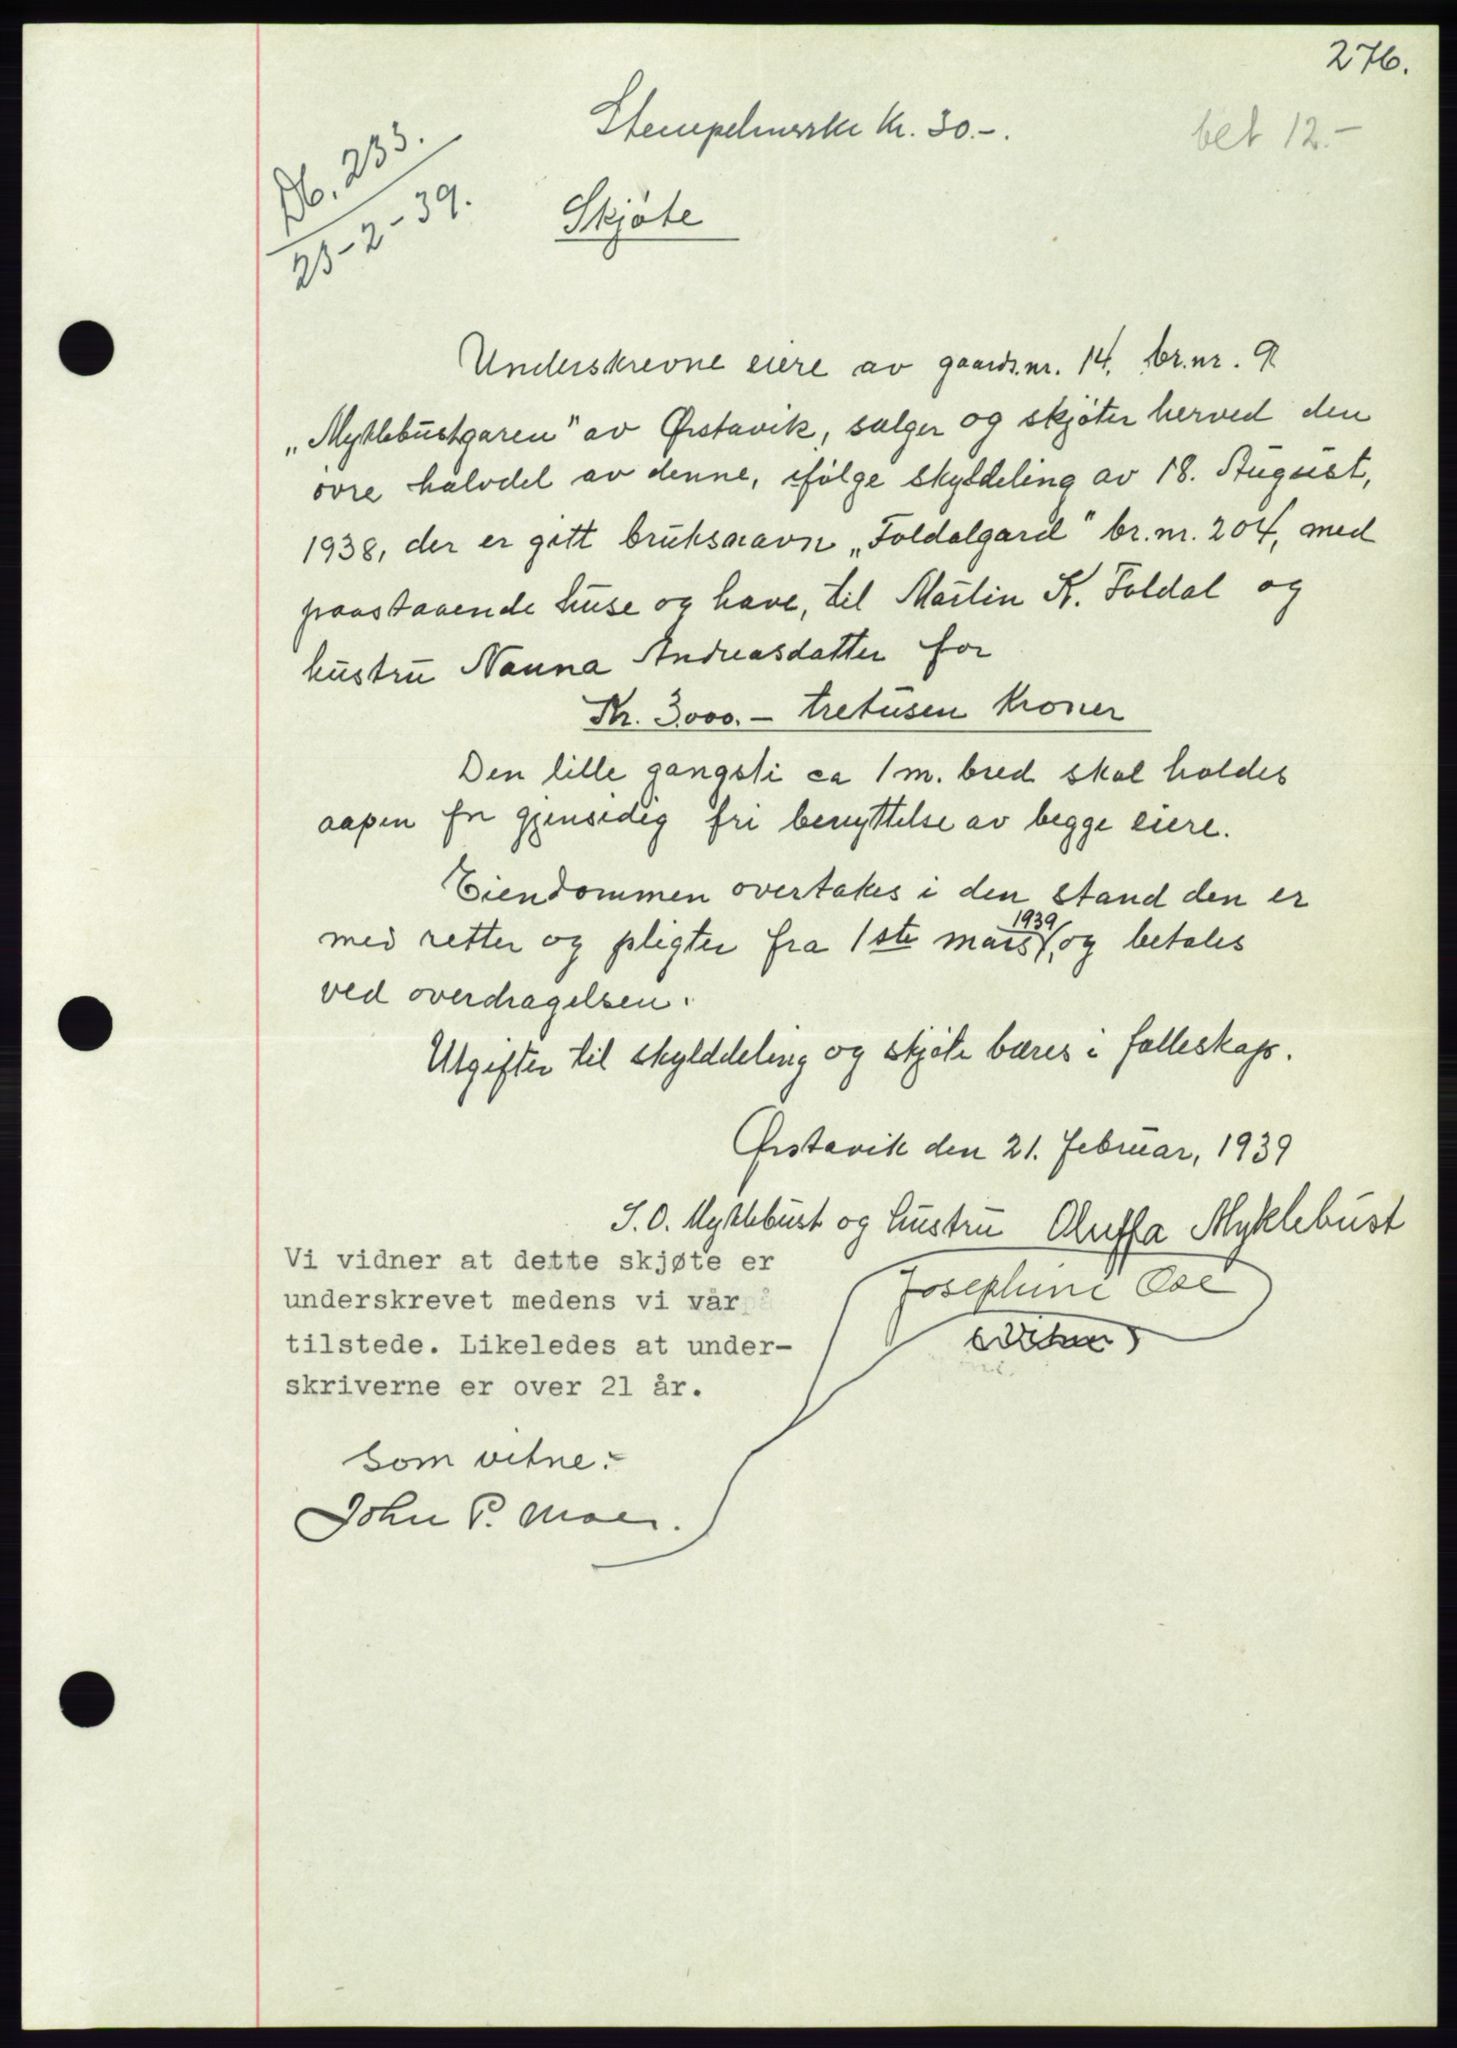 276.
Stempelmerke kr. 30.-.
bet 12.-
Db. 233.
23-2-39.
Skjøte
Underskrevne eiere av gaards.nr. 14. br.nr. 9
„Myklebustgaren" av Ørstavik, sælger og skjøter herved den
øvre halvdel av denne, ifølge skylddeling av 18. August,
1938, der er gitt bruksnavn „Foldalgard" br.nr. 204, med
paastaaende huse og have, til Martin K. Foldal og
hustru Nanna Andreasdatter for
Kr. 3.000.- tretusen Kroner
Den lille gangsti ca 1 m. bred skal holdes
aapen for gjensidig fri benyttelse av begge eiere.
Eiendommen overtakes i den stand den er
med retter og pligter fra 1ste mars 1939, og betales
ved overdragelsen.
Utgifter til skylddeling og skjøte bæres i fælleskap.
Ørstavik den 21. februar, 1939
S. O. Myklebust og hustru Oluffa Myklebust
Vi vidner at dette skjøte er
underskrevet medens vi var
tilstede. Likeledes at under-
skriverne er over 21 år.
Josephine Ose
som vitne:-
John P. Moen.